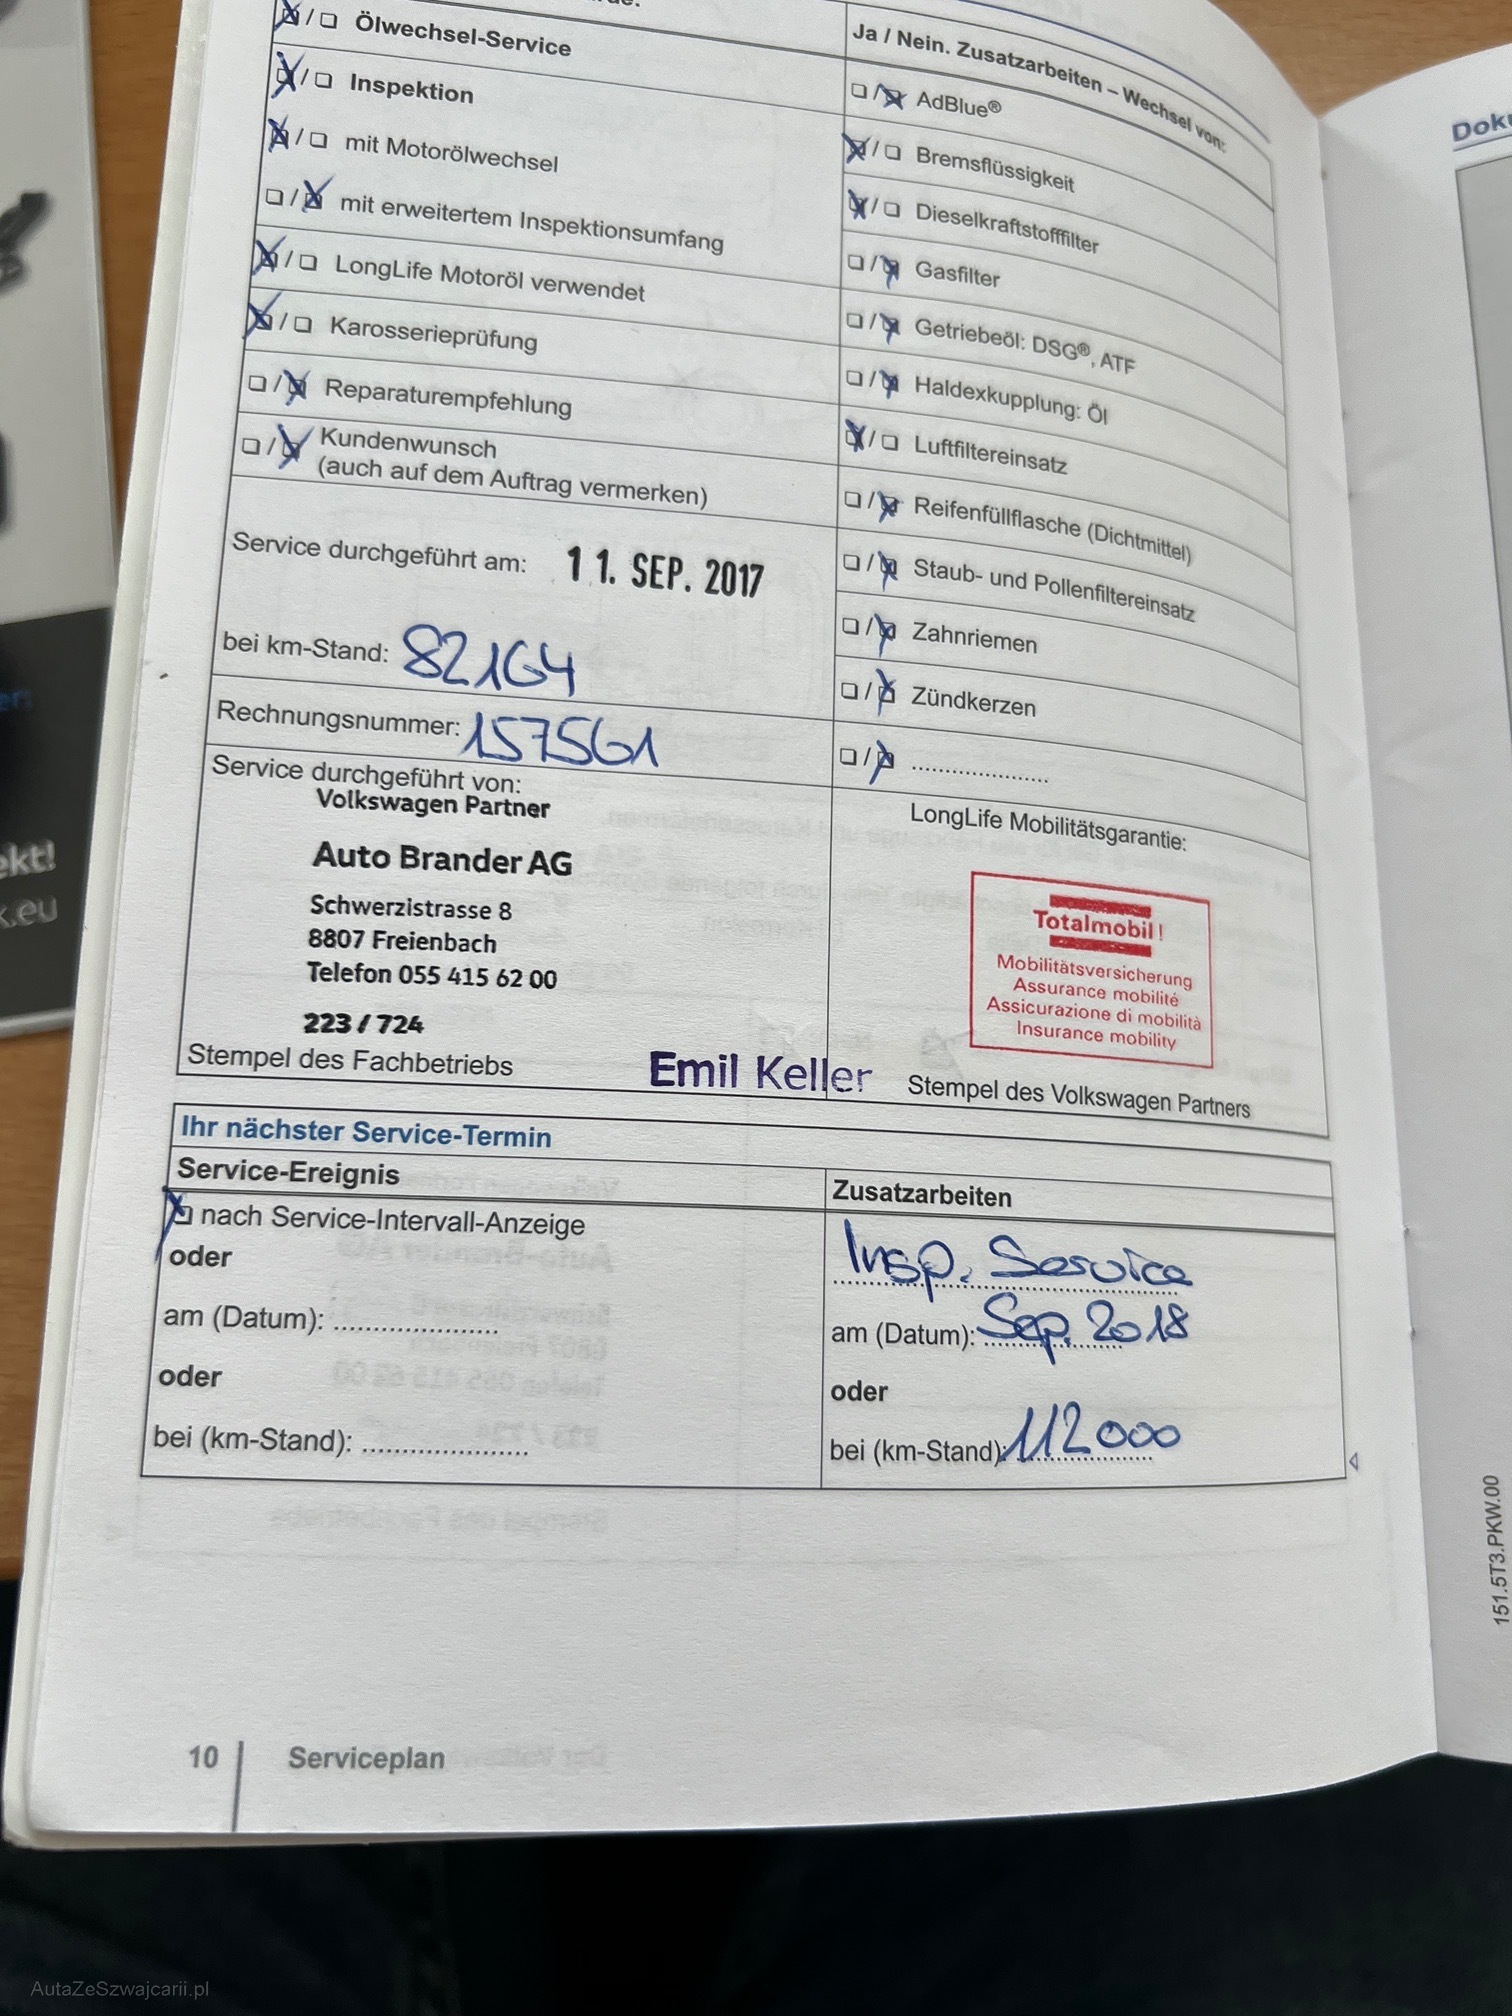 ☒/☐ Ölwechsel-Service
☒/☐ Inspektion
☒/☐ mit Motorölwechsel
☐/☒ mit erweitertem Inspektionsumfang
☒/☐ LongLife Motoröl verwendet
☒/☐ Karosserieprüfung
☐/☒ Reparaturempfehlung
☐/☒ Kundenwunsch
(auch auf dem Auftrag vermerken)
Service durchgeführt am: 11. SEP. 2017
bei km-Stand: 82164
Rechnungsnummer: 157561
Service durchgeführt von:
Volkswagen Partner
Auto Brander AG
Schwerzistrasse 8
8807 Freienbach
Telefon 055 415 62 00
223 / 724
Stempel des Fachbetriebs
Emil Keller
Ja / Nein. Zusatzarbeiten – Wechsel von:
☐/☒ AdBlue®
☒/☐ Bremsflüssigkeit
☒/☐ Dieselkraftstofffilter
☐/☒ Gasfilter
☐/☒ Getriebeöl: DSG®, ATF
☐/☒ Haldexkupplung: Öl
☒/☐ Luftfiltereinsatz
☐/☒ Reifenfüllflasche (Dichtmittel)
☐/☒ Staub- und Pollenfiltereinsatz
☐/☒ Zahnriemen
☐/☒ Zündkerzen
☐/☒ .....................
LongLife Mobilitätsgarantie:
Totalmobil!
Mobilitätsversicherung
Assurance mobilité
Assicurazione di mobilità
Insurance mobility
Stempel des Volkswagen Partners
Ihr nächster Service-Termin
Service-Ereignis
☒ nach Service-Intervall-Anzeige
oder
am (Datum): .........................
oder
bei (km-Stand): .........................
Zusatzarbeiten
Insp. Service
am (Datum): Sep. 2018
oder
bei (km-Stand): 112000
10 Serviceplan
Doku
151.5T3.PKW.00
er:
ekt!
k.eu
AutaZeSzwajcarii.pl